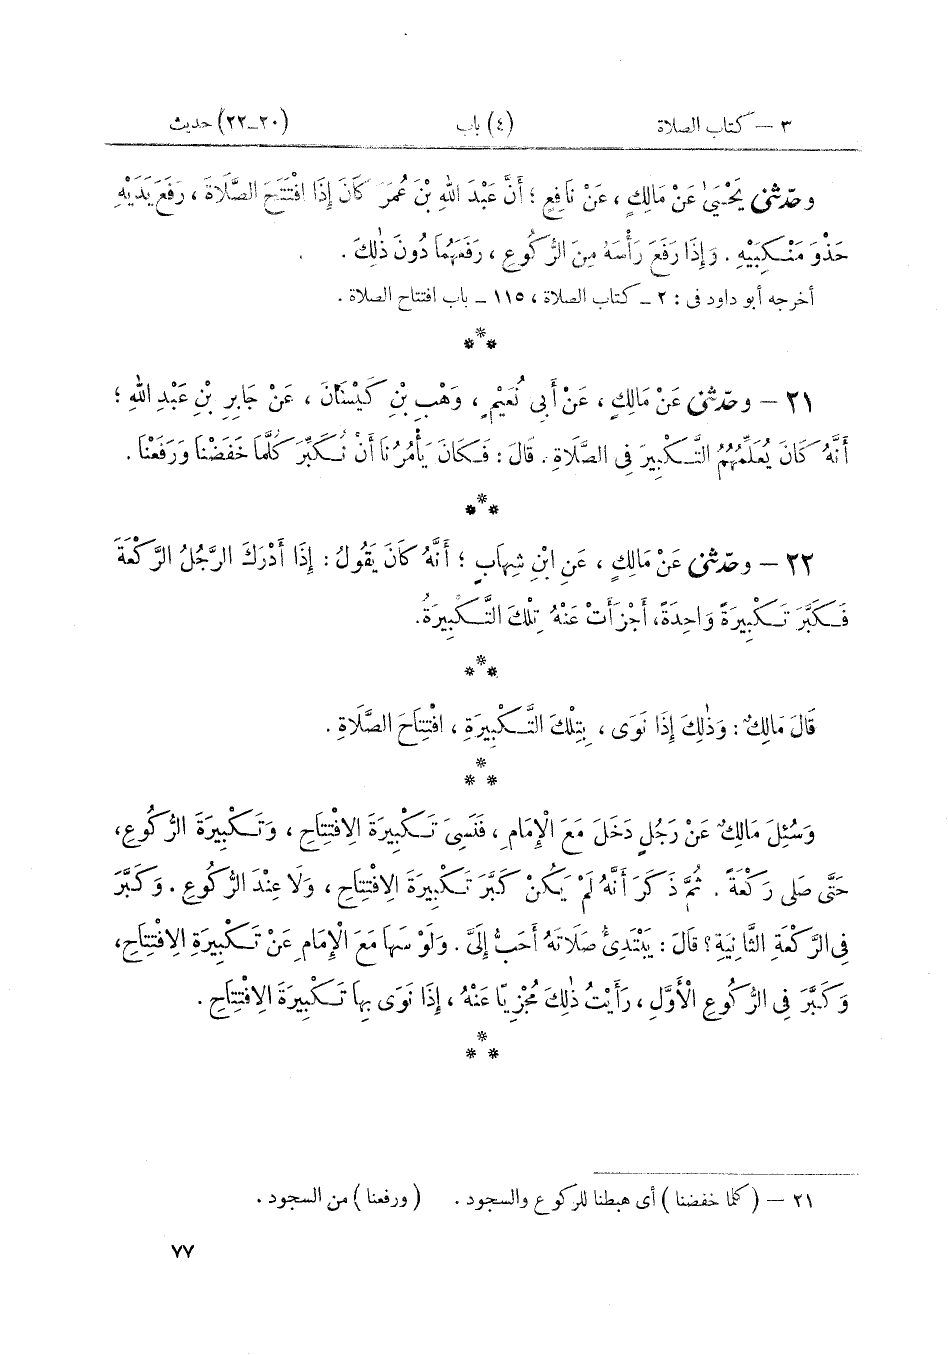 ٣ – كتاب الصلاة (٤) باب (٢٠–٢٢) حديث
وحدّثنى يَحْيَىٰ عَنْ مَالِكٍ ، عَنْ نَافِعٍ ؛ أَنَّ عَبْدَ اللهِ بْنَ عُمَرَ كَانَ إِذَا افْتَتَحَ الصَّلَاةَ ، رَفَعَ يَدَيْهِ
حَذْوَ مَنْكِبَيْهِ . وَإِذَا رَفَعَ رَأْسَهُ مِنَ الرُّكُوعِ ، رَفَعَهُمَا دُونَ ذٰلِكَ .
أخرجه أبو داود فى : ٢ ـ كتاب الصلاة ، ١١٥ ـ باب افتتاح الصلاة .
***
٢١ – وحدّثنى عَنْ مَالِكٍ ، عَنْ أَبِى نُعَيْمٍ ، وَهْبِ بْنِ كَيْسَانَ ، عَنْ جَابِرِ بْنِ عَبْدِ اللهِ ؛
أَنَّهُ كَانَ يُعَلِّمُهُمُ التَّكْبِيرَ فِى الصَّلَاةِ . قَالَ : فَكَانَ يَأْمُرُنَا أَنْ نُكَبِّرَ كُلَّمَا خَفَضْنَا وَرَفَعْنَا .
***
٢٢ – وحدّثنى عَنْ مَالِكٍ ، عَنِ ابْنِ شِهَابٍ ؛ أَنَّهُ كَانَ يَقُولُ : إِذَا أَدْرَكَ الرَّجُلُ الرَّكْعَةَ
فَكَبَّرَ تَكْبِيرَةً وَاحِدَةً، أَجْزَأَتْ عَنْهُ تِلْكَ التَّكْبِيرَةُ.
***
قَالَ مَالِكٌ : وَذٰلِكَ إِذَا نَوَى ، بِتِلْكَ التَّكْبِيرَةِ ، افْتِتَاحَ الصَّلَاةِ .
***
وَسُئِلَ مَالِكٌ عَنْ رَجُلٍ دَخَلَ مَعَ الْإِمَامِ ، فَنَسِىَ تَكْبِيرَةَ الِافْتِتَاحِ ، وَتَكْبِيرَةَ الرُّكُوعِ،
حَتَّى صَلَّى رَكْعَةً . ثُمَّ ذَكَرَ أَنَّهُ لَمْ يَكُنْ كَبَّرَ تَكْبِيرَةَ الِافْتِتَاحِ ، وَلَا عِنْدَ الرُّكُوعِ . وَكَبَّرَ
فِى الرَّكْعَةِ الثَّانِيَةِ ؟ قَالَ : يَبْتَدِئُ صَلَاتَهُ أَحَبُّ إِلَىَّ . وَلَوْ سَهَا مَعَ الْإِمَامِ عَنْ تَكْبِيرَةِ الِافْتِتَاحِ،
وَكَبَّرَ فِى الرُّكُوعِ الْأَوَّلِ ، رَأَيْتُ ذٰلِكَ مُجْزِيًا عَنْهُ ، إِذَا نَوَى بِهَا تَكْبِيرَةَ الِافْتِتَاحِ .
***
٢١ – (كلما خفضنا) أى هبطنا للركوع والسجود . (ورفعنا) من السجود .
٧٧